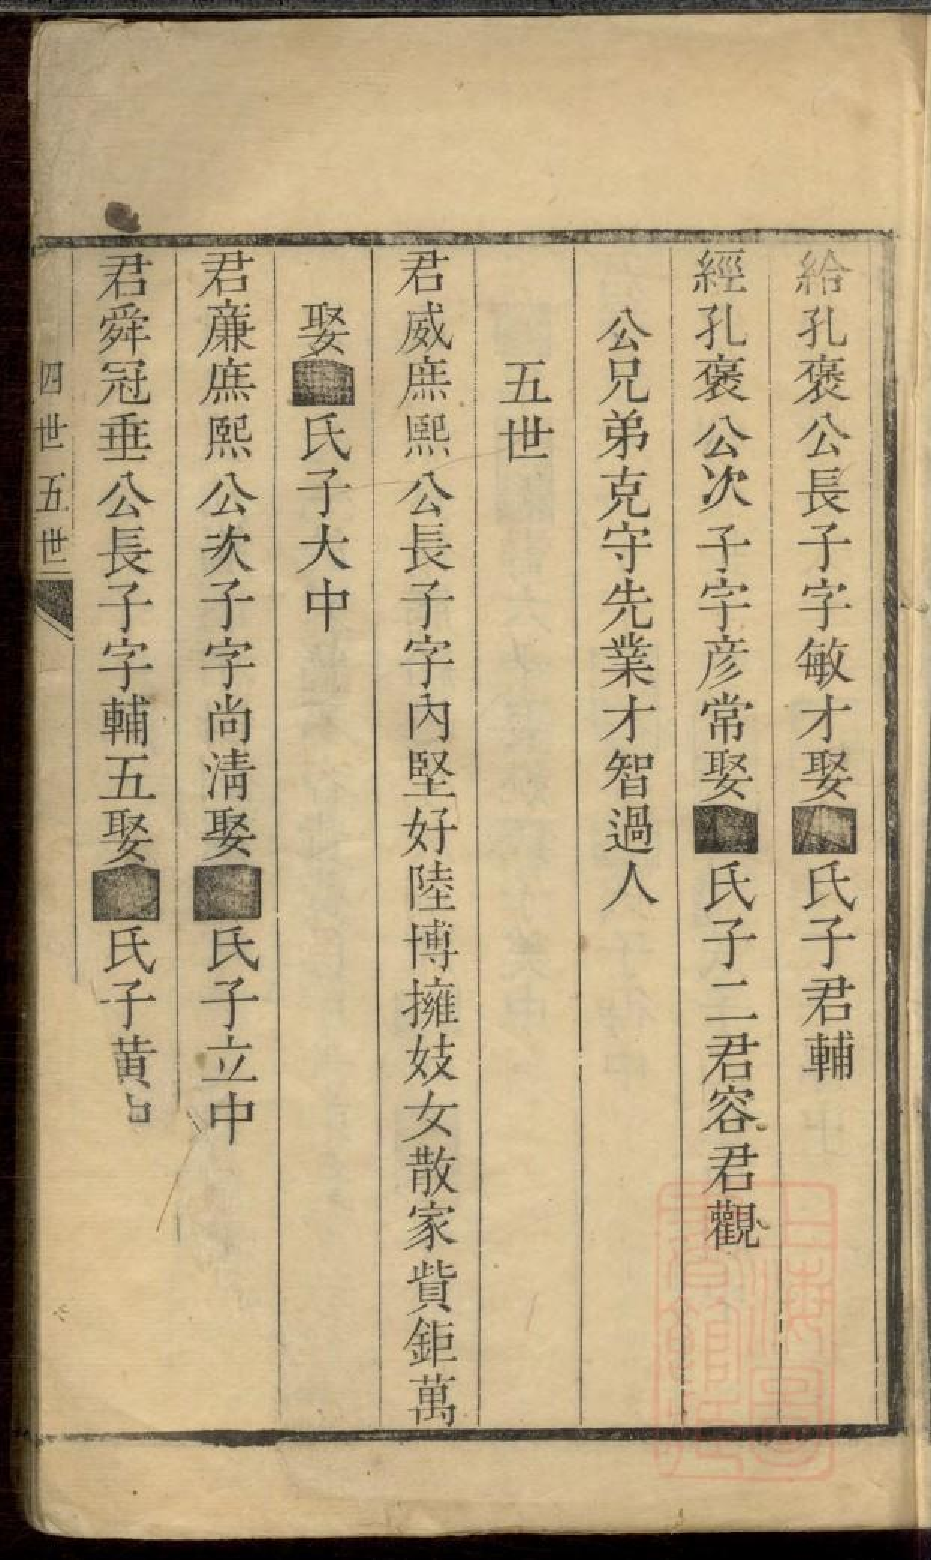 給孔褒公長子字敏才娶氏子君輔
經孔褒公次子字彦常娶氏子二君容君觀
公兄弟克守先業才智過人
五世
君威庶熙公長子字內堅好陸博擁妓女散家貲鉅萬
娶氏子大中
君亷庶熙公次子字尚清娶氏子立中
君舜冠垂公長子字輔五娶氏子黄中
四世五世